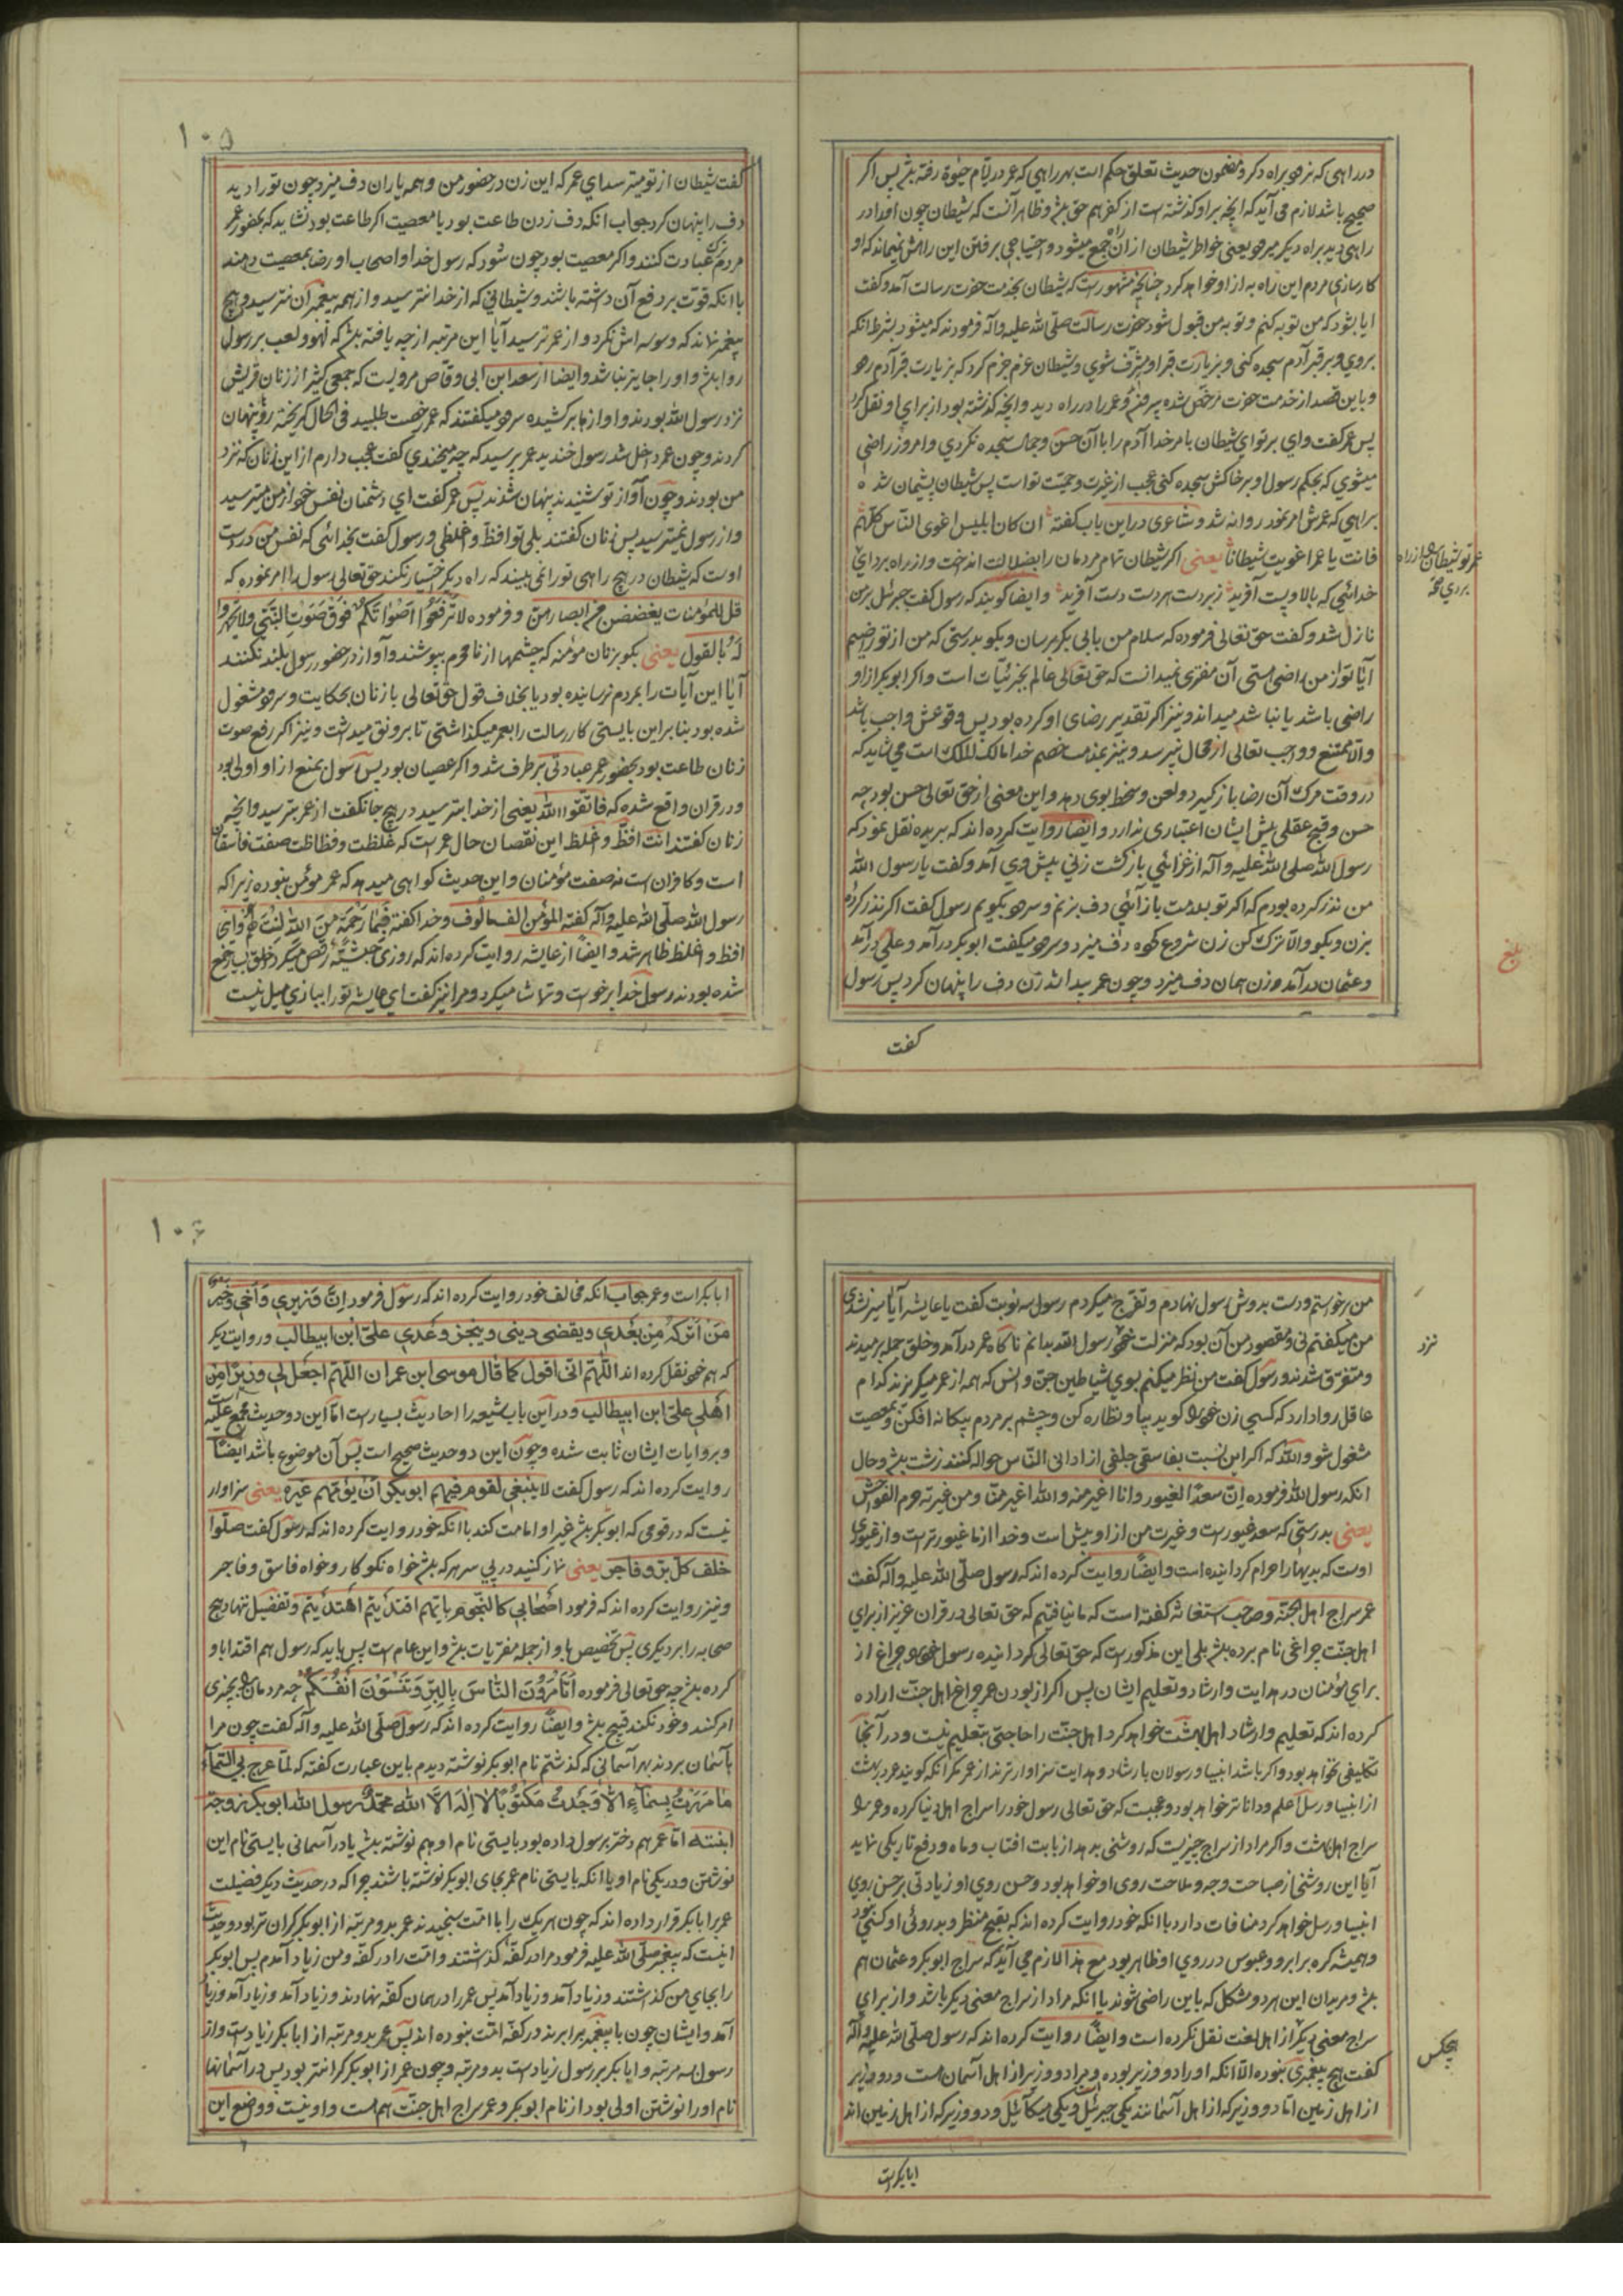 در راهی که نرود براه دکر و مضمون حدیث تعلق حکم است بهر راهی که عمر در ایام حیوة رفته بشد پس اکر
صحیح باشد لازم می آید که آنچه بر او کذشته است از کفر هم حق بشد و ظاهر آنست که شیطان چون او را در
راهی دید براه دیکر میرود یعنی خواطر شیطان از آن راه جمع میشود و احتیاجی برفتن این راهش نمیماند که او
کارسازی مردم این راه به از او خواهد کرد چنانچه مشهورست که شیطان بخدمت حضرت رسالت آمد و کفت
ایا بشود که من توبه کنم و توبه من قبول شود حضرت رسالت صلی الله علیه و آله فرمودند که میشود بشرط انکه
بروی و بر قبر آدم سجده کنی و بزیارت قبر او مشرف شوی و شیطان عزم جزم کرد که بزیارت قبر آدم رود
و باین قصد از خدمت حضرت مرخص شده میرفت و عمر را در راه دید و آنچه کذشته بود از برای او نقل کرد
پس عمر کفت وای بر تو ای شیطان بامر خدا آدم را با آن حسن و جمال سجده نکردی و امروز راضی
میشوی که بحکم رسول او بر خاکش سجده کنی عجب از غیرت و حمیت تو است پس شیطان پشیمان شد
براهی که عمرش امر نمود روانه شد و شاعری در این باب کفته ان کان ابلیس اغوی الناس کلهم
فانت یا عمر اغویت شیطانا یعنی اکر شیطان تمام مردمان را بضلالت انداخت و از راه برد ای
عمر تو شیطان را از راه بردی
خدائی که بالا و پست آفرید زبردست هر دست دست آفرید و ایضا کویند که رسول کفت جبرئیل بر من
نازل شد و کفت حق تعالی فرموده که سلام من بابی بکر برسان و بکو بدرستی که من از تو راضیم
آیا تو از من راضی هستی آن مفتری نمیدانست که حق تعالی عالم بجزئیات است و اکر ابوبکر از او
راضی باشد یا نباشد میداند و نیز اکر تقدیر رضای او کرده بود پس وقوعش واجب باشد
والا ممتنع و واجب تعالی از محال نپرسد و نیز بمذهب خصم خدا مالک الملک است می شاید که
در وقت مرک آن رضا باز کیرد و لعن و سخط بوی دهد و این معنی از حق تعالی حسن بود چه
حسن و قبح عقلی پیش ایشان اعتباری ندارد و ایضا روایت کرده اند که بریده نقل نمود که
رسول الله صلی الله علیه و آله از غزائی بازکشت زنی پیش وی آمد و کفت یا رسول الله
من نذر کرده بودم که اکر تو بسلامت باز آئی دف بزنم و سرود بکویم رسول کفت اکر نذر کرده
بزن و بکو والا ترک کن زن شروع کرده دف میزد و سرود میکفت ابوبکر در آمد و علی در آمد
و عثمان در آمد و زن همان دف میزد و چون عمر پیدا شد زن دف را پنهان کرد پس رسول
بلغ
کفت
۱۰۵
کفت شیطان از تو میترسد ای عمر که این زن در حضور من و همه یاران دف میزد چون تو را دید
دف را پنهان کرد جواب انکه دف زدن طاعت بود یا معصیت اکر طاعت بود نشاید که بحضور عمر
مردم ترک عبادت کنند و اکر معصیت بود چون شود که رسول خدا و اصحاب او رضا بمعصیت دهند
با انکه قوت بر دفع آن داشته باشند و شیطانی که از خدا نترسید و از همه پیغمبران نترسید و هیچ
پیغمبر نماند که وسوسه اش نکرد و از عمر ترسید آیا این مرتبه از چه یافته بشد که لهو و لعب بر رسول
روا بشد و او را جایز نباشد و ایضا از سعد ابن ابی وقاص مرویست که جمعی کثیر از زنان قریش
نزد رسول الله بودند و آوازها بر کشیده سرود میکفتند که عمر رخصت طلبید فی الحال کریخته رو پنهان
کردند و چون عمر داخل شد رسول خندید عمر پرسید که چه میخندی کفت عجب دارم از این زنان که نزد
من بودند و چون آواز تو شنیدند پنهان شدند پس عمر کفت ای دشمنان نفس خود از من میترسید
و از رسول نمیترسید پس زنان کفتند بلی تو افظ و اغلظی و رسول کفت بخدائی که نفس من در دست
اوست که شیطان در هیچ راهی تو را نمی بیند که راه دیکر اختیار نکند حق تعالی رسول را امر نموده که
قل للمؤمنات یغضضن من ابصارهن و فرموده لا ترفعوا اصواتکم فوق صوت النبی ولا تجهروا
له بالقول یعنی بکو بزنان مؤمنه که چشمها از نامحرم بپوشند و آواز در حضور رسول بلند نکنند
آیا این آیات را بمردم نرسانیده بود یا بخلاف قول حق تعالی با زنان بحکایت و سرود مشغول
شده بود بنابراین بایستی کار رسالت را بعمر میکذاشتی تا بر رونق میداشت و نیز اکر رفع صوت
زنان طاعت بود بحضور عمر عبادتی بر طرف شد و اکر عصیان بود پس رسول بمنع از او اولی بود
و در قران واقع شده که فاتقوا الله یعنی از خدا بترسید در هیچ جا نکفت از عمر بترسید و آنچه
زنان کفتند انت افظ و اغلظ این نقصان حال عمر است که غلظت و فظاظت صفت فاسقان
است و کافران است نه صفت مؤمنان و این حدیث کواهی میدهد که عمر مؤمن نبوده زیرا که
رسول الله صلی الله علیه و آله کفته المؤمن الف مالوف و خدا کفته فبما رحمة من الله لنت لهم و ای
افظ و اغلظ ظاهر شد و ایضا از عایشه روایت کرده اند که روزی حبشیه رقص میکرد و خلق بسیار جمع
شده بودند رسول خدا برخواست و تماشا میکرد و مرا نیز کفت ای عایشه تو را ببازی میل نیست
من برخواستم و دست بدوش رسول نهادم و تفرج میکردم رسول سه نوبت کفت یا عایشه آیا سیر نشدی
من میکفتم نی و مقصود من آن بود که منزلت خود رسول الله بدانم ناکاه عمر در آمد و خلق جمله برمیدند
نزد
و متفرق شدند و رسول کفت من نظر میکنم بوی شیاطین جن و انس که همه از عمر میکریزند کدام
عاقل روا دارد که کسی زن خود را کوید بیا و نظاره کن و چشم بر مردم بیکانه افکن و بمعصیت
مشغول شو والله که اکر این نسبت بفاسقی جلفی از ادانی الناس حواله کنند زشت بشد و حال
انکه رسول الله فرموده ان سعدا لغیور و انا اغیر منه و الله اغیر منا و من غیرته حرم الفواحش
یعنی بدرستی که سعد غیورست و غیرت من از او بیش است و خدا از ما غیورترست و از غیوری
اوست که بدیها را حرام کردانیده است و ایضا روایت کرده اند که رسول صلی الله علیه و آله کفت
عمر سراج اهل الجنة و صاحب استغاثه کفته است که ما نیافتیم که حق تعالی در قران عزیز از برای
اهل جنت چراغی نام برده بشد بلی این مذکورست که حق تعالی کردانیده رسول خود را چراغ از
برای مؤمنان در هدایت و ارشاد و تعلیم ایشان پس اکر از بودن عمر چراغ اهل جنت اراده
کرده اند که تعلیم و ارشاد اهل بهشت خواهد کرد اهل جنت را حاجتی بتعلیم نیست و در آنجا
تکلیفی نخواهد بود و اکر باشد انبیا و رسولان بارشاد و هدایت سزاوارترند از عمر مکر انکه کویند عمر در بهشت
از انبیا و رسل اعلم و داناتر خواهد بود و عجبست که حق تعالی رسول خود را سراج اهل دنیا کرده و عمر را
سراج اهل بهشت و اکر مراد از سراج چیزیست که روشنی بدهد از بابت افتاب و ماه و دفع تاریکی نماید
آیا این روشنی از صباحت وجه و ملاحت روی او خواهد بود و حسن روی او زیادتی بر حسن روی
انبیا و رسل خواهد کرد منافات دارد با انکه خود روایت کرده اند که بقبح منظر و بدروئی او کسی نبود
و همیشه کره بر ابرو و عبوس در روی او ظاهر بود مع هذا لازم می آید که سراج ابوبکر و عثمان هم
بشد و مریدان این هر دو مشکل که باین راضی شوند یا انکه مراد از سراج معنی دیکر باشد و از برای
سراج معنی دیکر از اهل لغت نقل نکرده است و ایضا روایت کرده اند که رسول صلی الله علیه و آله
هیچکس
کفت هیچ پیغمبری نبوده الا انکه او را دو وزیر بوده و مرا دو وزیر از اهل آسمان است و دو وزیر
از اهل زمین اما دو وزیر که از اهل آسمانند یکی جبرئیل و یکی میکائیل و دو وزیر که از اهل زمین اند
ابابکر است
۱۰۶
ابابکر است و عمر جواب انکه مخالف خود روایت کرده اند که رسول فرمود ان وزیری و اخی و خیر
من اترکه من بعدی و یقضی دینی و ینجز وعدی علی ابن ابیطالب و در روایت دیکر
که هم خود نقل کرده اند اللهم انی اقول کما قال موسی ابن عمران اللهم اجعل لی وزیرا من
اهلی علی ابن ابیطالب و در آین باب شیعه را احادیث بسیارست اما این دو حدیث مجمع علیه است
و بروایات ایشان ثابت شده و چون این دو حدیث صحیح است پس آن موضوع باشد ایضا
روایت کرده اند که رسول کفت لا ینبغی لقوم فیهم ابوبکر ان یؤمهم غیره یعنی سزاوار
نیست که در قومی که ابوبکر بشد غیر او امامت کند با انکه خود روایت کرده اند که رسول کفت صلوا
خلف کل بر و فاجر یعنی نماز کنید در پی سر هر که بشد خواه نکوکار و خواه فاسق و فاجر
و نیز روایت کرده اند که فرمود اصحابی کالنجوم بایهم اقتدیتم اهتدیتم و تفضیل ننهاد هیچ
صحابه را بر دیکری پس تخصیص باو از جمله مفتریات بشد و این عام است پس باید که رسول هم اقتدا باو
کرده بشد چه حق تعالی فرموده اتامرون الناس بالبر و تنسون انفسکم چه مردمان را بچیزی
امر کنند و خود نکنند قبیح بشد و ایضا روایت کرده اند که رسول صلی الله علیه و آله کفت چون مرا
بآسمان بردند بهر آسمانی که کذشتم نام ابوبکر نوشته دیدم باین عبارت کفته که لما عرج بی السماء
ما مررت بسماء الا وجدت مکتوبا لا اله الا الله محمد رسول الله ابوبکر زوجه
ابنته اما عمر هم دختر برسول داده بود بایستی نام او هم نوشته بشد یا در آسمانی بایستی نام این
نوشتن و در یکی نام او یا انکه بایستی نام عمر بجای ابوبکر نوشته باشند چرا که در حدیث دیکر فضیلت
عمر بر ابابکر قرار داده اند که چون هر یک را با امت سنجیدند عمر بدو مرتبه از ابوبکر کران تر بود و حدیث
اینست که پیغمبر صلی الله علیه فرمود مرا در کفه کذاشتند و امت را در کفه و من زیاد آمدم پس ابوبکر
را بجای من کذاشتند و زیاد آمد و زیاد آمد پس عمر را در همان کفه نهادند و زیاد آمد و زیاد آمد و زیاد
آمد و ایشان چون با پیغمبر برابرند در کفه امت نبوده اند پس عمر بدو مرتبه از ابابکر زیادست و از
رسول سه مرتبه و ابابکر بر رسول زیادست بدو مرتبه و چون عمر از ابوبکر کرانتر بود پس در آسمانها
نام او را نوشتن اولی بود از نام ابوبکر و عمر سراج اهل جنت هم هست و او نیست و وضع این